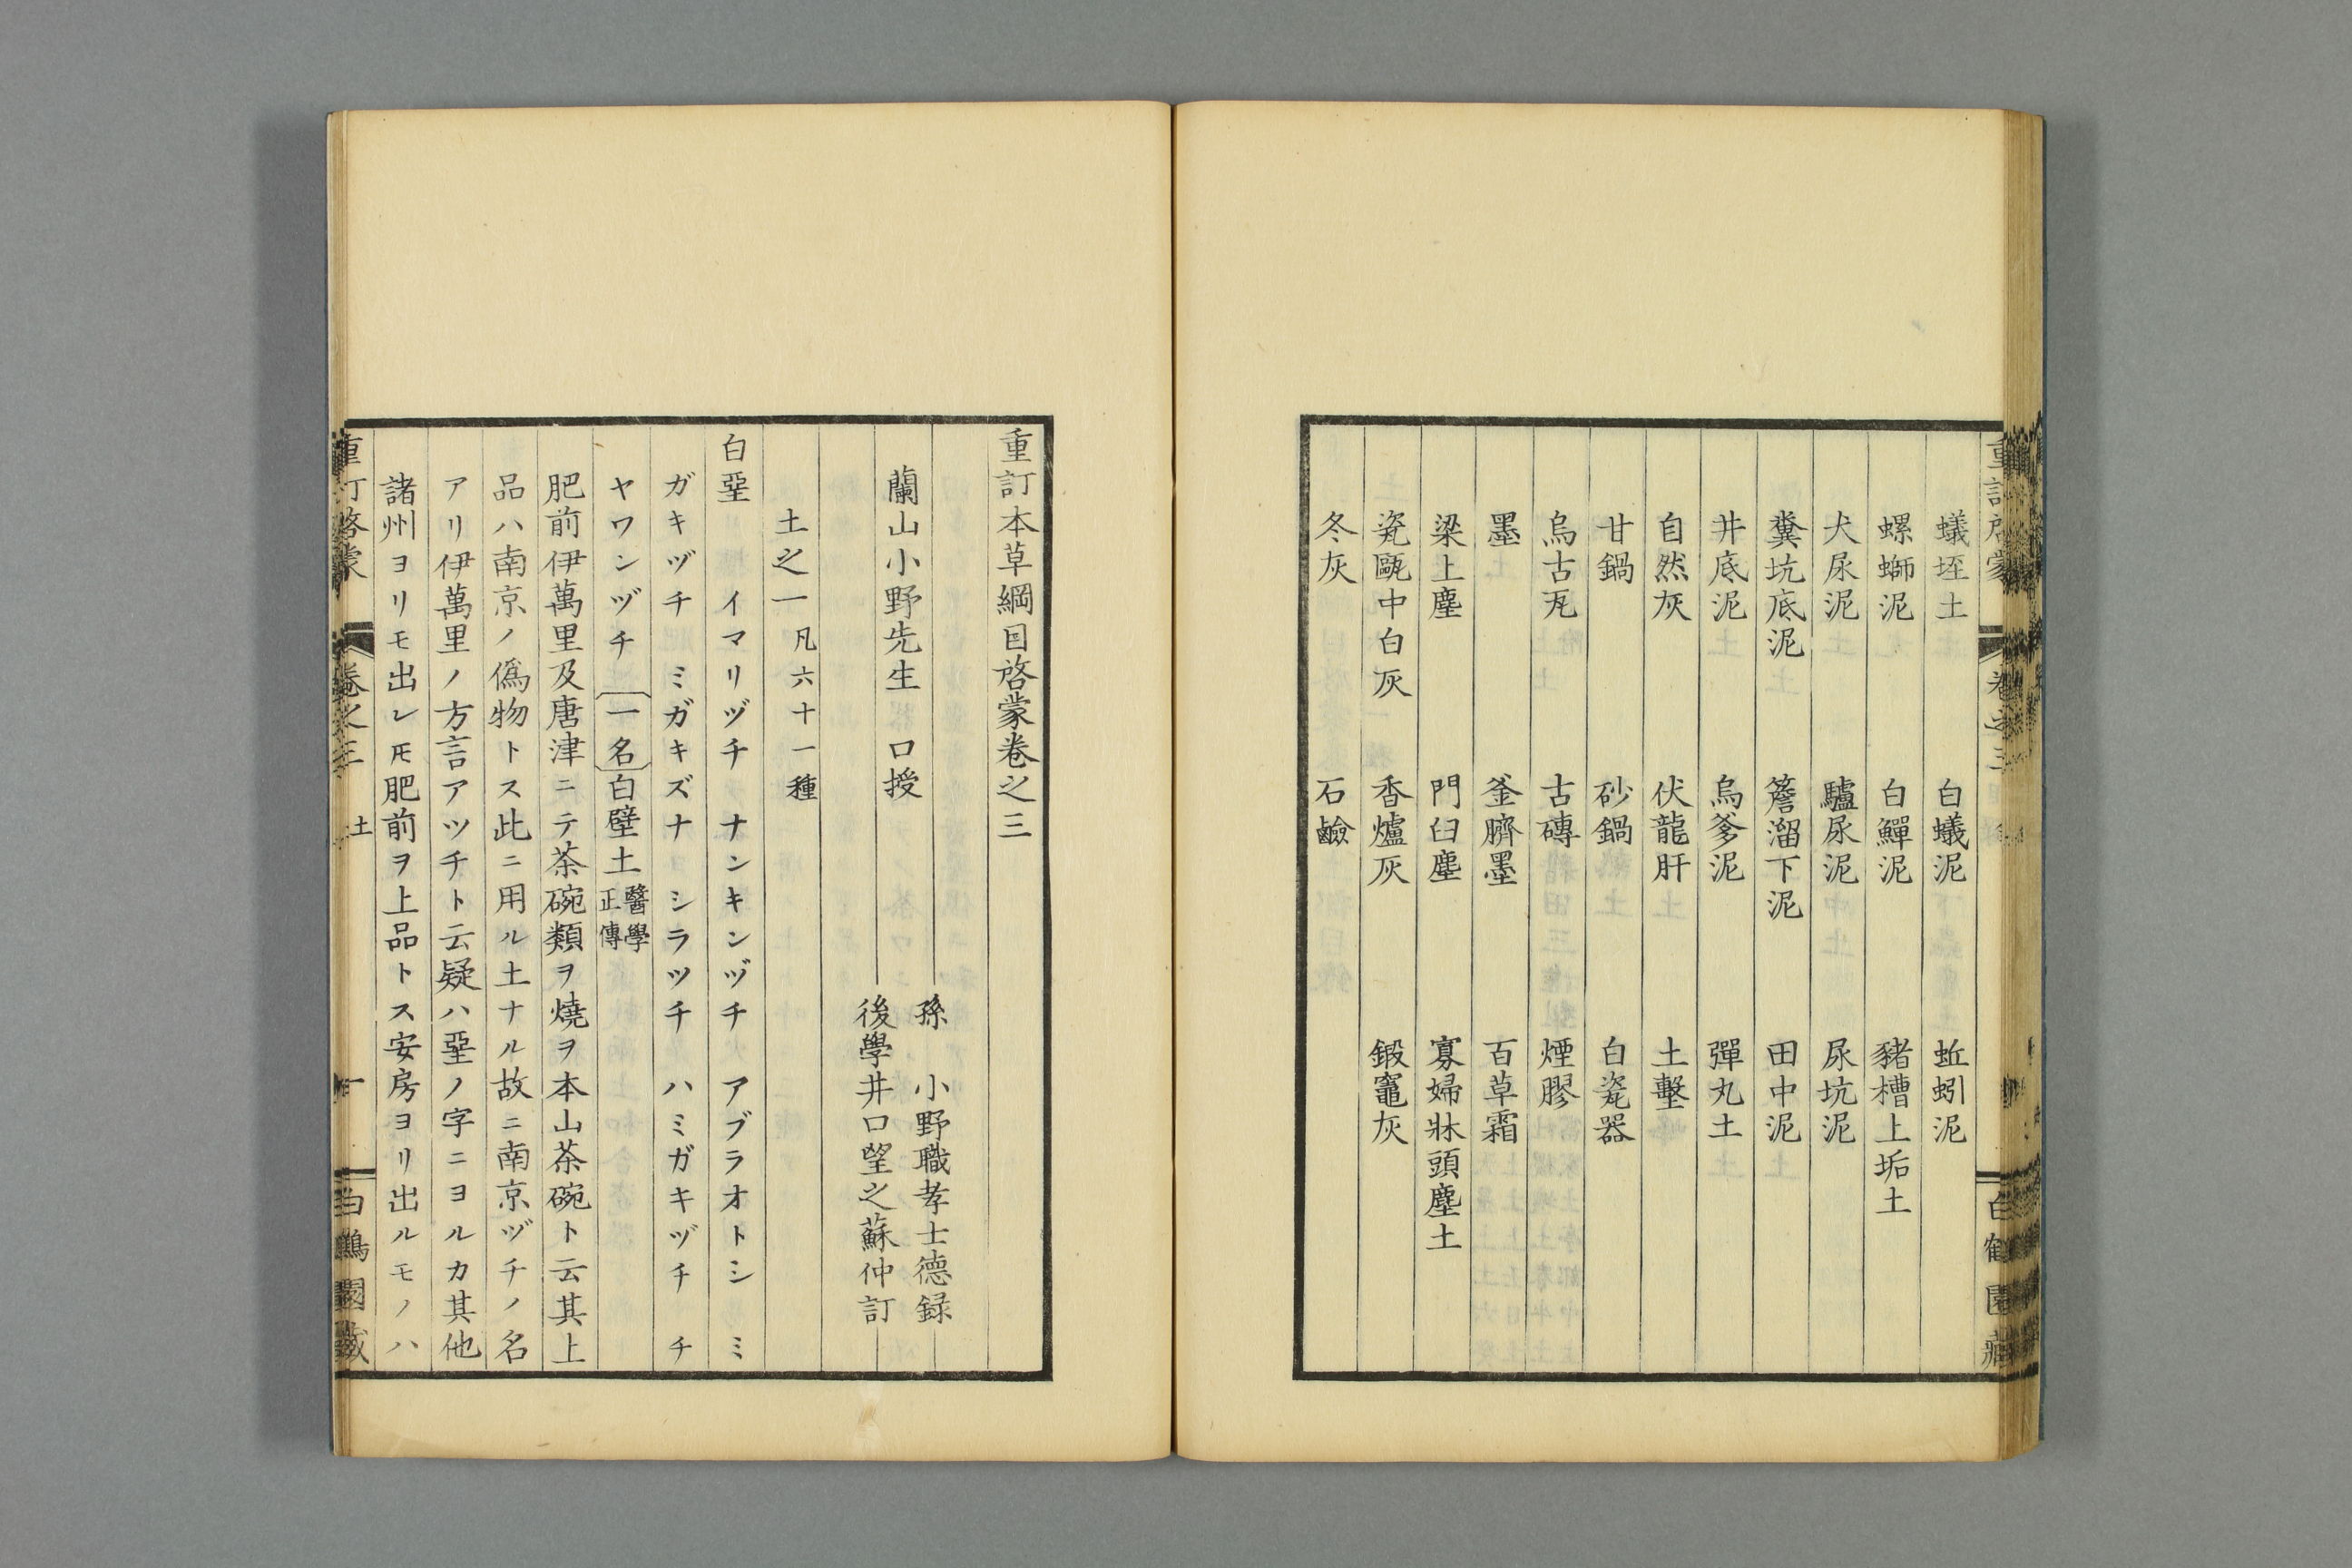 重訂啓蒙 卷之三 白鶴園藏
蟻垤土 白蟻泥 蚯蚓泥
螺螄泥 白鱓泥 豬槽上垢土
犬尿泥 驢尿泥 尿坑泥
糞坑底泥 簷溜下泥 田中泥
井底泥 烏爹泥 彈丸土
自然灰 伏龍肝 土墼
甘鍋 砂鍋 白瓷器
烏古瓦 古磚 煙膠
墨 釜臍墨 百草霜
梁上塵 門臼塵 寡婦牀頭塵土
瓷甌中白灰 香爐灰 鍛竈灰
冬灰 石鹼
重訂本草綱目啓蒙卷之三
孫 小野職孝士德録
蘭山小野先生 口授
後學井口望之蘇仲訂
土之一 凡六十一種
白堊 イマリヅチ ナンキンヅチ アブラオトシ ミ
ガキヅチ ミガキズナ シラツチ ハミガキヅチ チ
ヤワンヅチ 〔一名〕白壁土 醫學正傳
肥前伊萬里及唐津ニテ茶碗類ヲ燒ヲ本山茶碗ト云其上
品ハ南京ノ僞物トス此ニ用ル土ナル故ニ南京ヅチノ名
アリ伊萬里ノ方言アツチト云疑ハ堊ノ字ニヨルカ其他
諸州ヨリモ出レ𪜈肥前ヲ上品トス安房ヨリ出ルモノハ
重訂啓蒙 卷之三 土 一 白鶴園藏